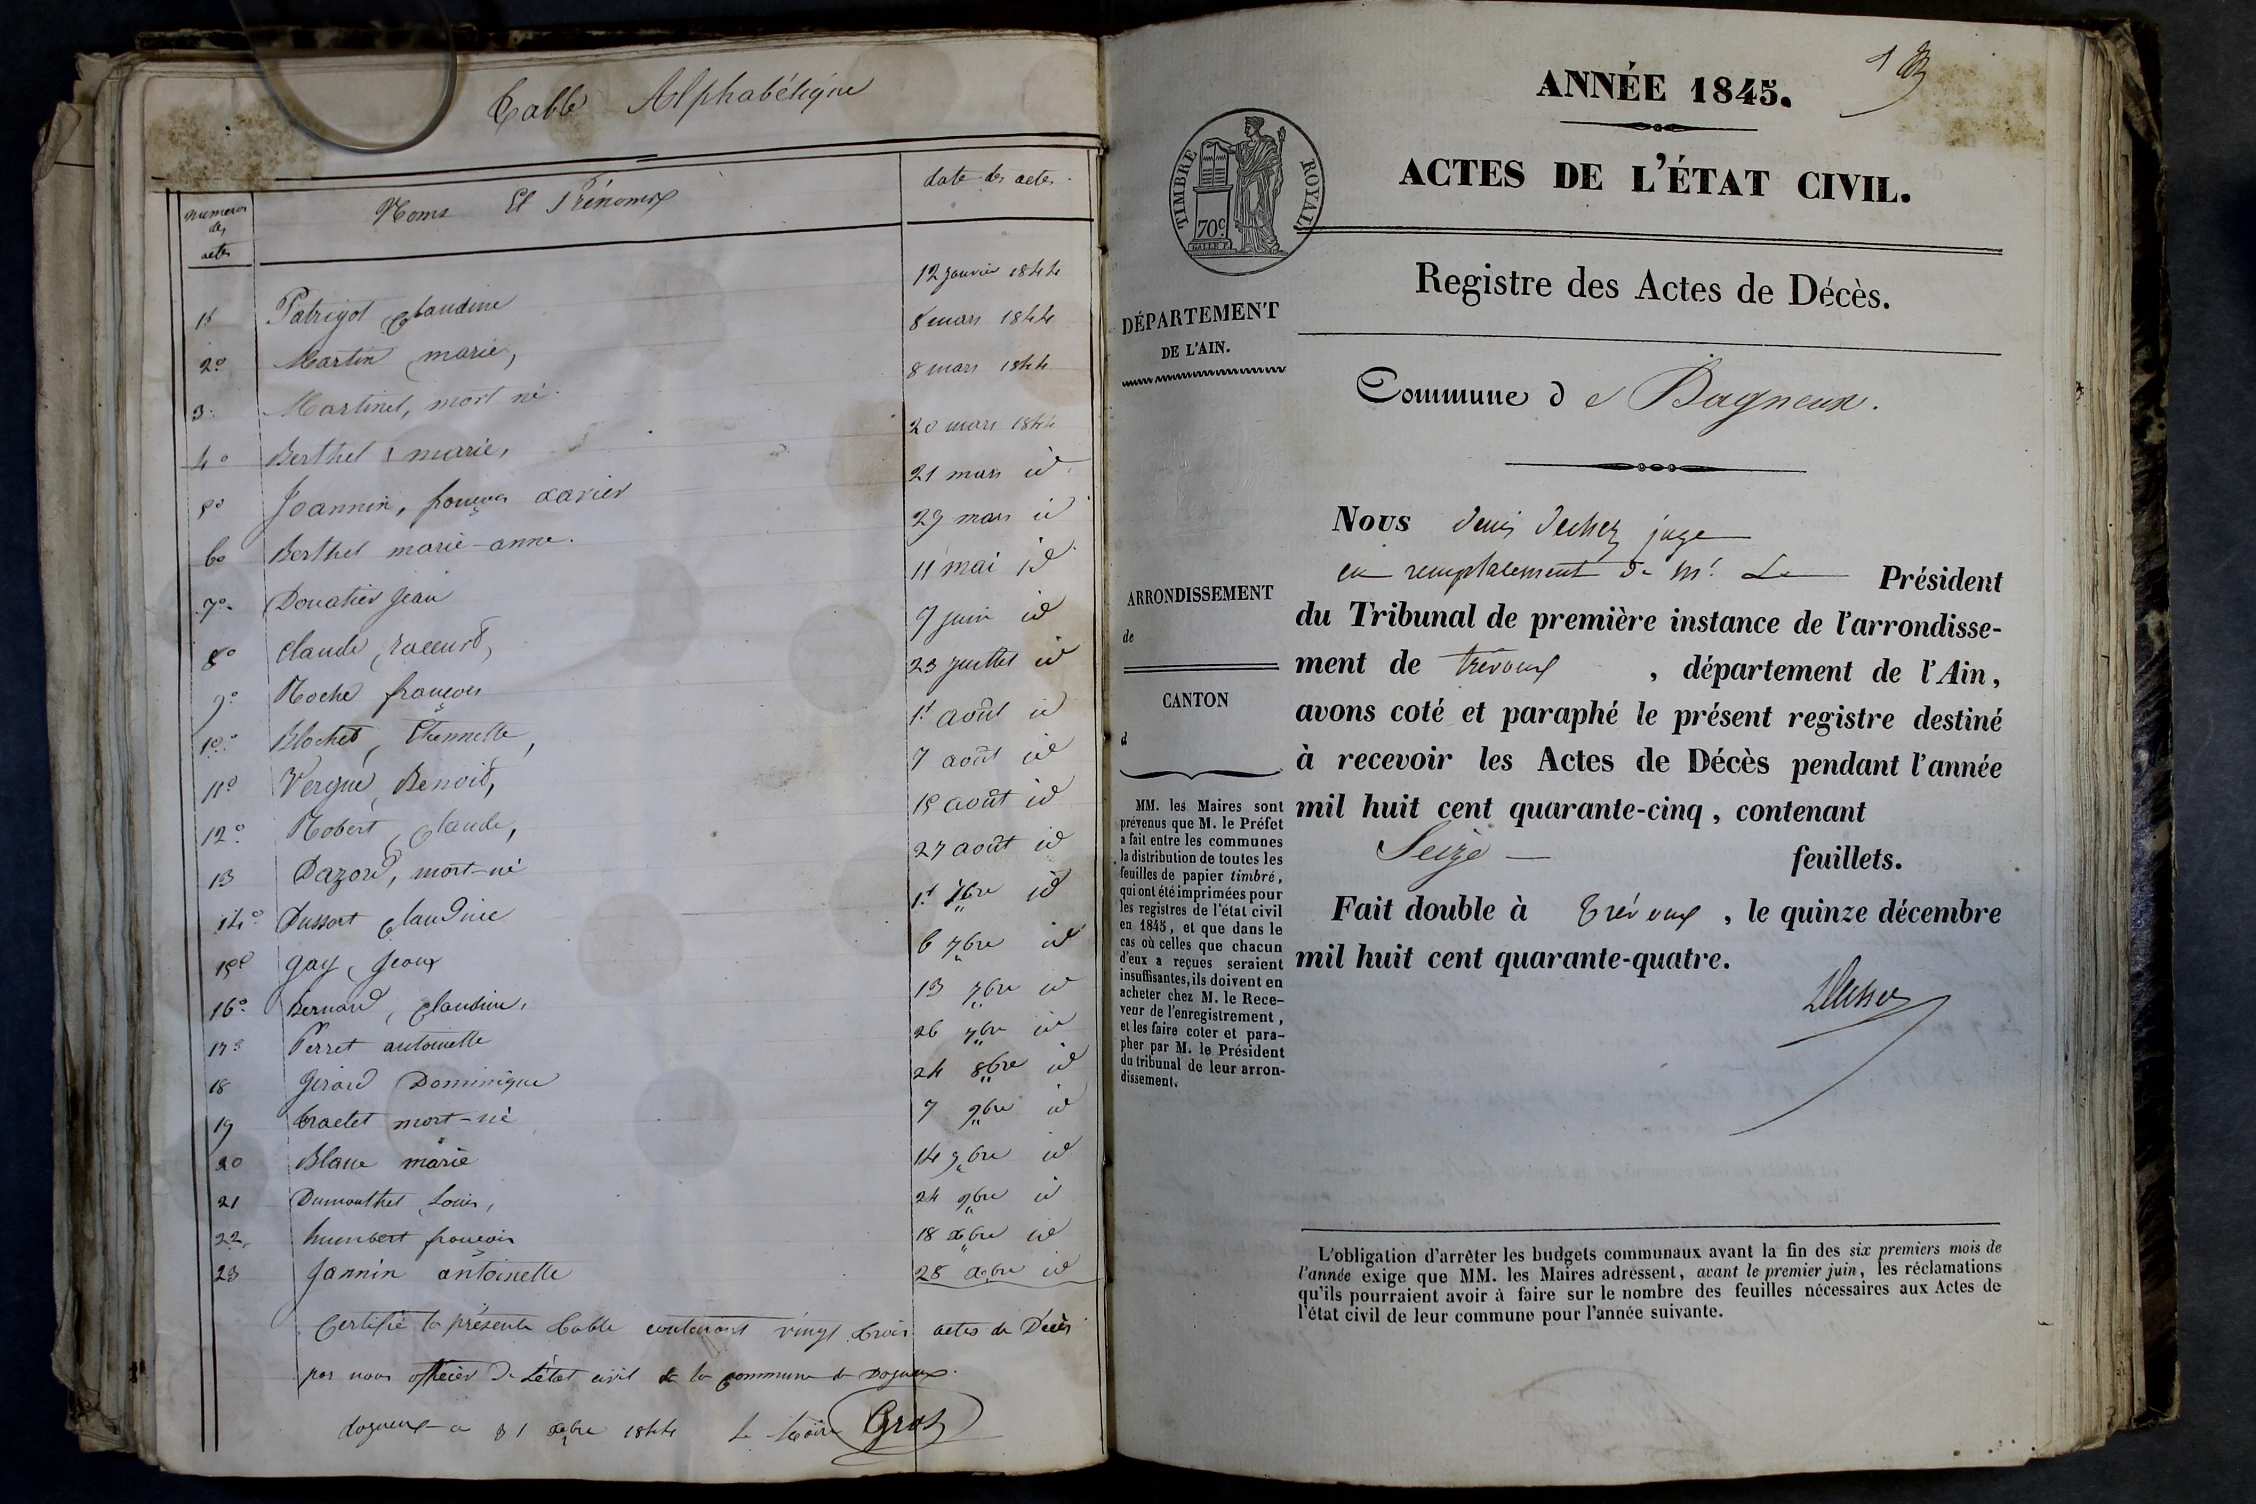 Table Alphabétique
numeros des actes
Noms Et Prénoms
date des actes
1º Patrigot Claudine 12 janvier 1844
2º Martin marie, 8 mars 1844
3. Martinet, mort né. 8 mars 1844
4º Berthet marie, 20 mars 1844
5º Joannin, françois xavier 21 mars id
6º Berthet marie-anne. 29 mars id
7º Donatier Jean 11 mai id
8º Claude, 9 juin id
9º Roche françois 23 juillet id
10º Blochet, Etiennette, 1er août id
11º Vergne, Benoit, 7 août id
12º Robert, Claude, 15 août id
13 Dazord, mort-né 27 août id
14º Dussort Claudine 1er 7bre id
15º gay, Jeans 6 7bre id
16º Bernard, Claudine, 13 7bre id
17º Perret antoinette 26 7bre id
18 Girard Dominique 24 8bre id
19 mort-né 7 9bre id
20 Blanc marie 14 9bre id
21 Dumonthet Louis, 24 9bre id
22, humbert françois 18 xbre id
23 Jannin antoinette 28 xbre id
Certifié la présente table contenant vingt trois actes de Décès
par nous officier de L'état civil de la commune de Dagneux.
dagneux ce 31 xbre 1844 Le Maire Gros
ANNÉE 1845.
ACTES DE L'ÉTAT CIVIL.
TIMBRE ROYAL
70c
Registre des Actes de Décès.
DÉPARTEMENT
DE L'AIN.
Commune de Dagneux.
ARRONDISSEMENT
de
CANTON
d
MM. les Maires sont
prévenus que M. le Préfet
a fait entre les communes
la distribution de toutes les
feuilles de papier timbré,
qui ont été imprimées pour
les registres de l'état civil
en 1845, et que dans le
cas où celles que chacun
d'eux a reçues seraient
insuffisantes, ils doivent en
acheter chez M. le Rece-
veur de l'enregistrement,
et les faire coter et para-
pher par M. le Président
du tribunal de leur arron-
dissement.
Nous denis juge
en remplacement de Mr. Le Président
du Tribunal de première instance de l'arrondisse-
ment de trévoux, département de l'Ain,
avons coté et paraphé le présent registre destiné
à recevoir les Actes de Décès pendant l'année
mil huit cent quarante-cinq, contenant
Seize feuillets.
Fait double à Trévoux, le quinze décembre
mil huit cent quarante-quatre.
L'obligation d'arrêter les budgets communaux avant la fin des six premiers mois de
l'année exige que MM. les Maires adressent, avant le premier juin, les réclamations
qu'ils pourraient avoir à faire sur le nombre des feuilles nécessaires aux Actes de
l'état civil de leur commune pour l'année suivante.